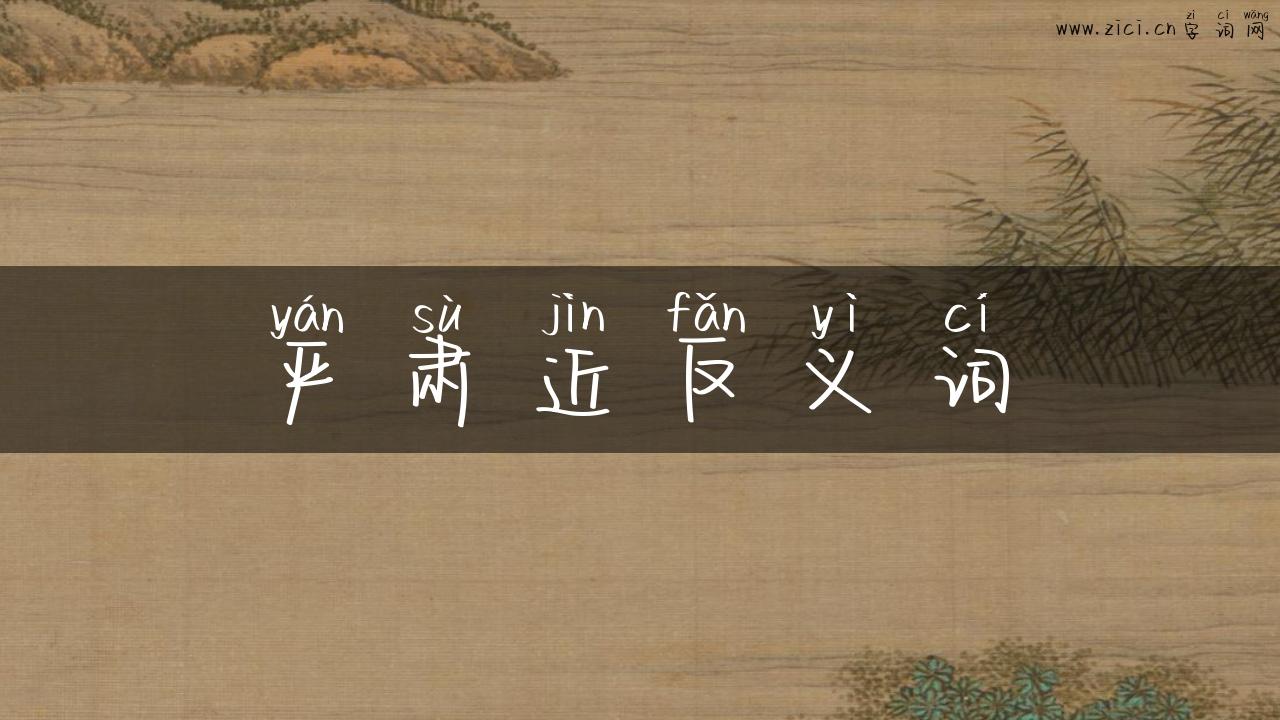 zì cí wǎng
www.zici.cn 字词网
yán sù jìn fǎn yì cí
严肃近反义词